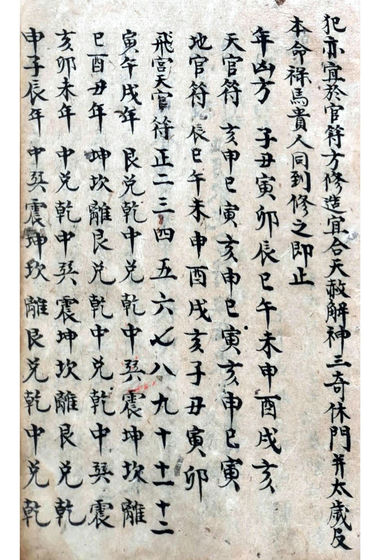 犯亦宜於官符方修造宜合天赦解神三奇休門并太歲及
本命祿馬貴人同到修之即止
年凶方 子丑寅卯辰巳午未申酉戌亥
天官符 亥申巳寅亥申巳寅亥申巳寅
地官符 辰巳午未申酉戌亥子丑寅卯
飛宮天官符 正二三四五六七八九十十一十二
寅午戌年 艮兌乾中兌乾中巽震坤坎離
巳酉丑年 坤坎離艮兌乾中兌乾中巽震
亥卯未年 中兌乾中巽震坤坎離艮兌乾
申子辰年 中巽震坤坎離艮兌乾中兌乾